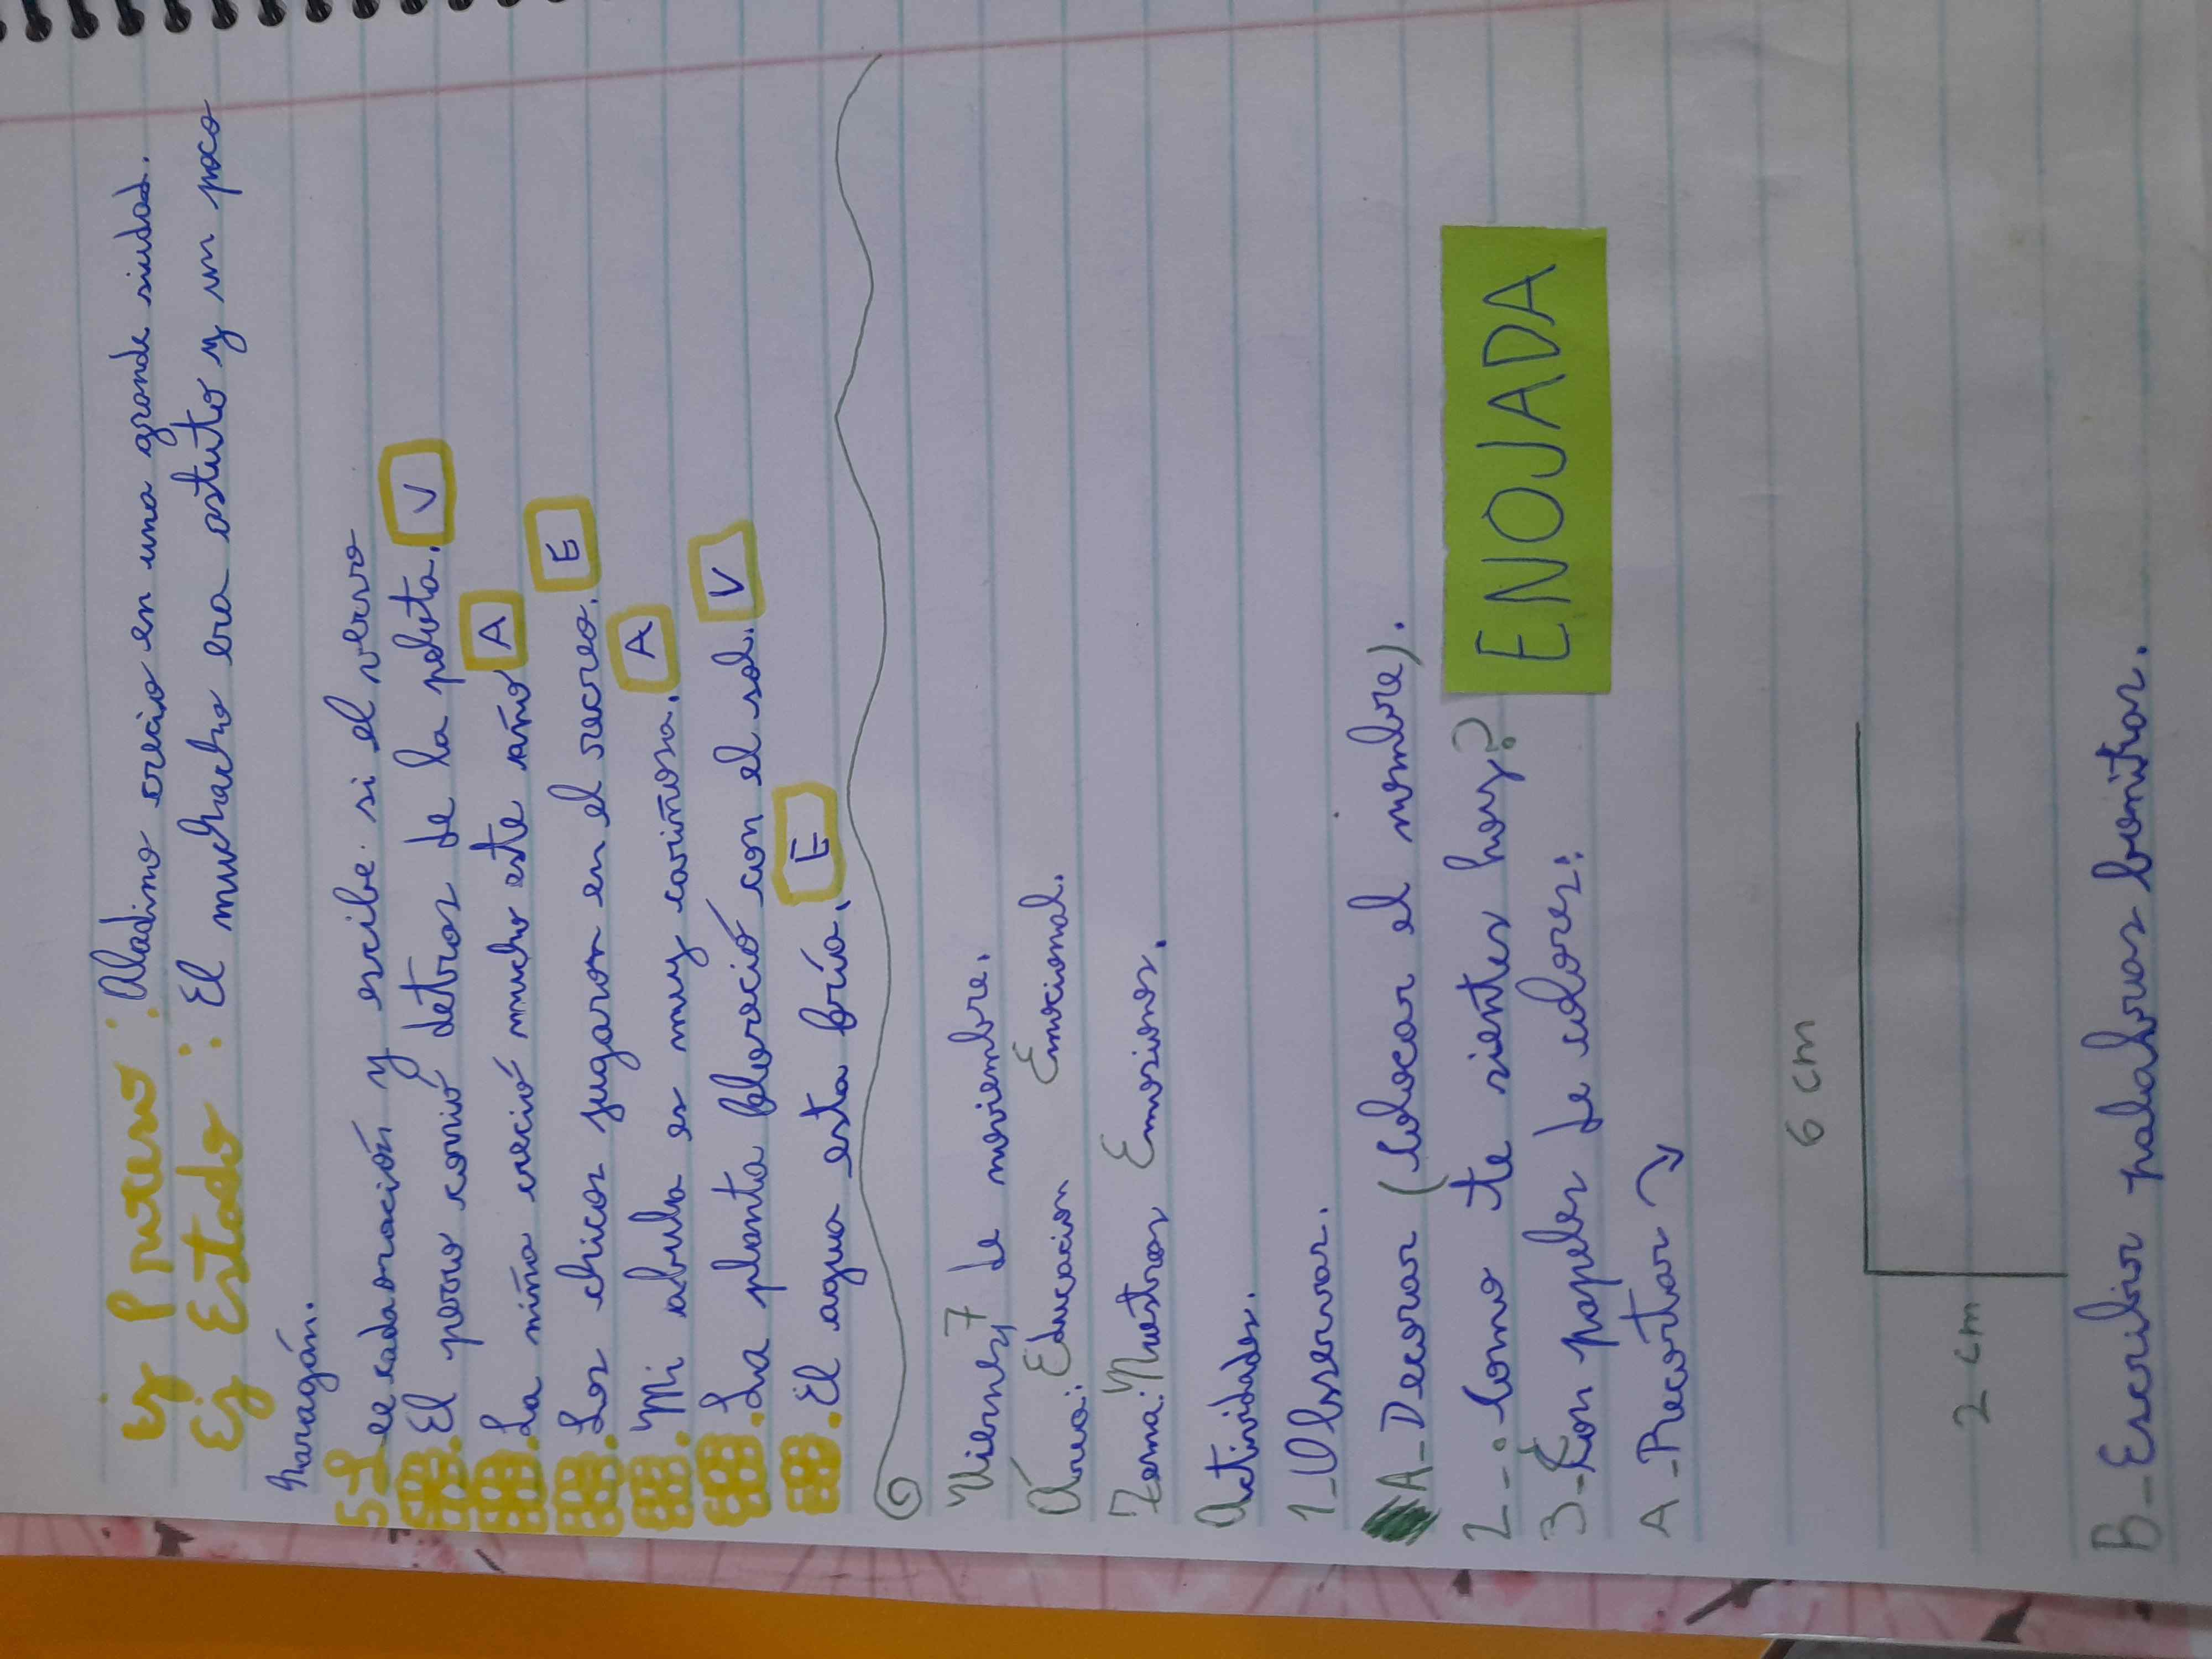 Ej Proceso: Aladino crecio en una grande siudad.
Ej Estado: El muchacho era astuto y un poco
haragán.
5-Lee cada oración y escribe si el vervo
.El perro corrió detras de la pelota. V
.La niña creció mucho este año A
.Los chicos jugaron en el recreo. E
.Mi abuela es muy cariñosa. A
.La planta floreció con el sol. V
.El agua esta fría. E
Viernes 7 de noviembre.
Área: Educacion Emocional.
Tema: Nuestras Emosiones.
Actividades.
1-Observar.
A-Decorar (Colocar el nombre).
2-¿Como te sientes hoy? ENOJADA
3-Con papeles de colores:
A-Recortar
6 cm
2 cm
B-Escribir palabras bonitas.